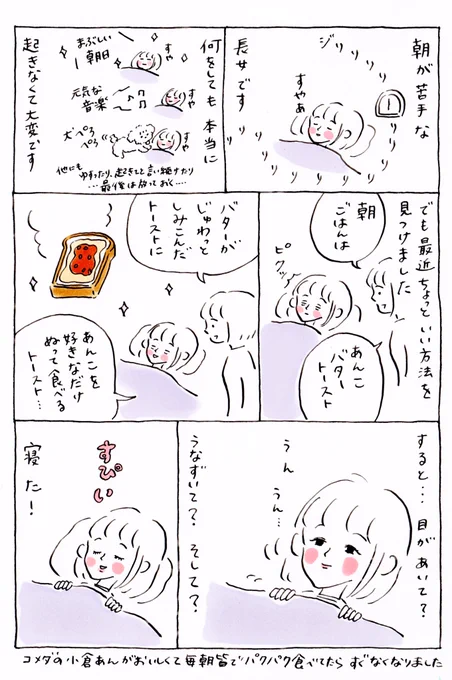 朝が苦手な
長女です
ジリリリリ
リリリリ
すやぁ
何をしても本当に
起きなくて大変です
まぶしい
朝日
すや
元気な
音楽
すや
犬ぺろ
ぺろ
すや
他にも
ゆすったり、起きてと言い続けたり
…最後は放っておく…
でも最近ちょっといい方法を
見つけました
朝
ごはんは
ピクッ
あんこ
バター
トースト
バターが
じゅわっと
しみこんだ
トーストに
あんこを
好きなだけ
ぬって食べる
トースト…
すると…目があいて？
うん
うん…
うなずいて？そして？
すぴぃ
寝た！
コメダの小倉あんがおいしくて毎朝皆でパクパク食べてたらすぐなくなりました